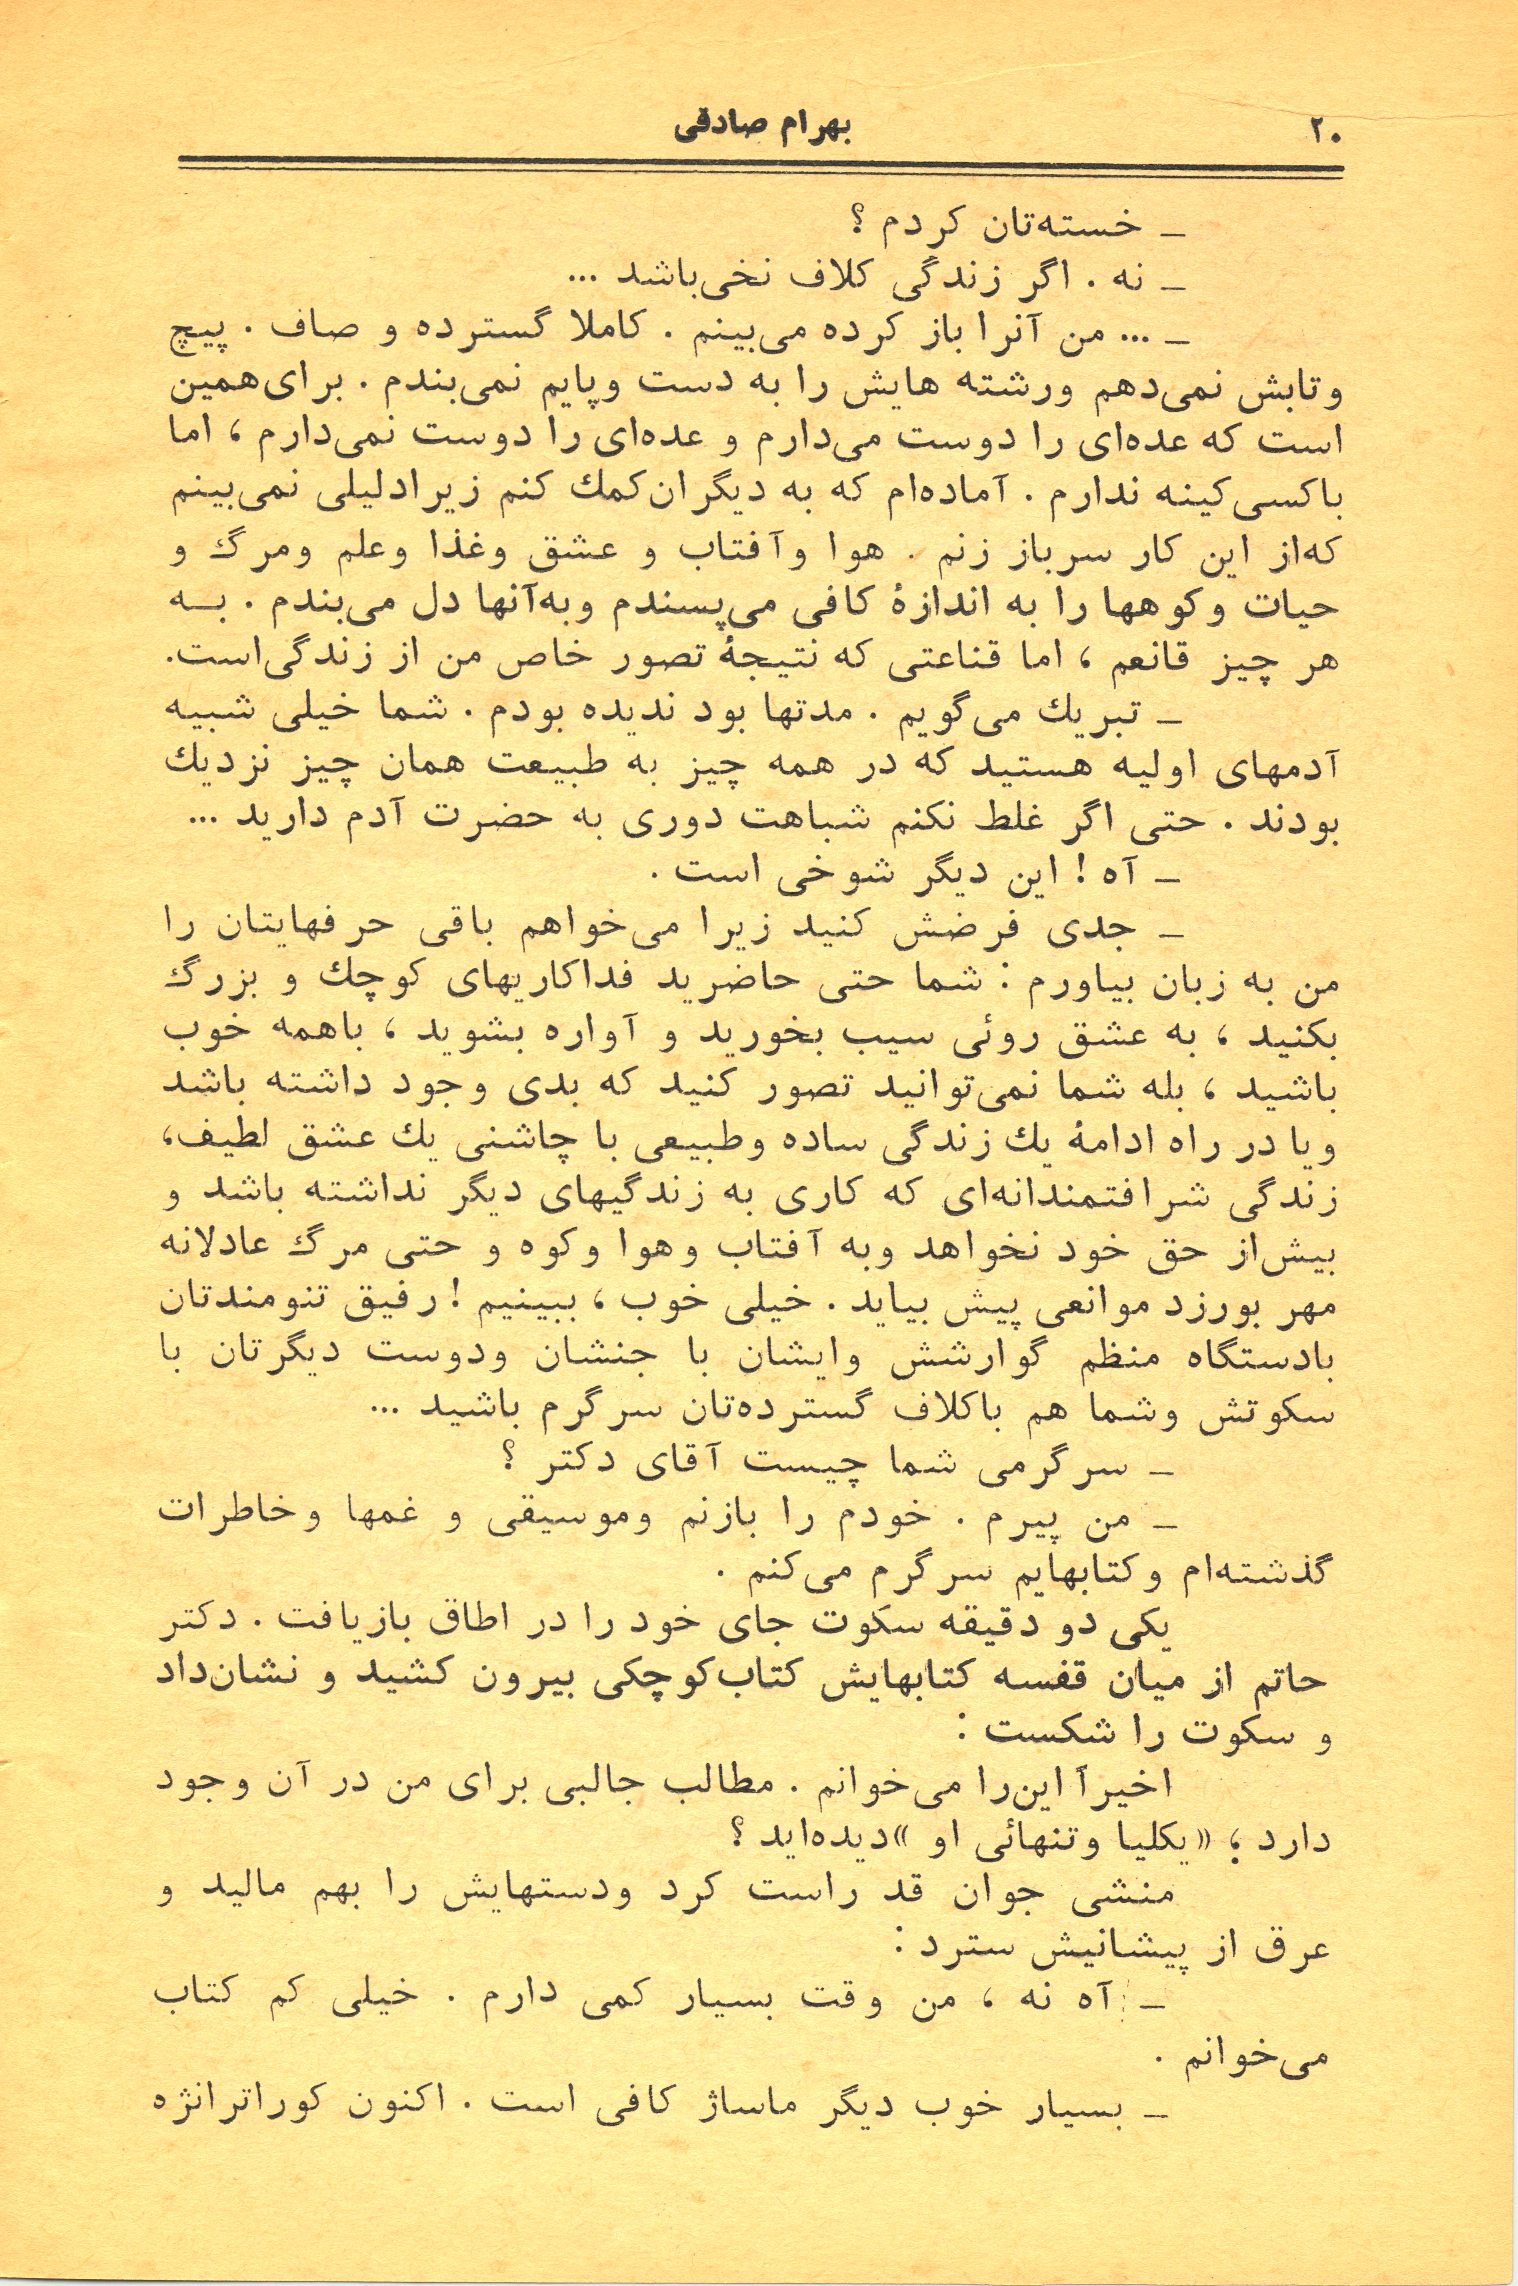 ۲۰
بهرام صادقی
ـ خسته‌تان کردم ؟
ـ نه . اگر زندگی کلاف نخی‌باشد ...
ـ ... من آنرا باز کرده می‌بینم . کاملا گسترده و صاف . پیچ
وتابش نمی‌دهم ورشته هایش را به دست وپایم نمی‌بندم . برای‌همین
است که عده‌ای را دوست می‌دارم و عده‌ای را دوست نمی‌دارم ، اما
باکسی‌کینه ندارم . آماده‌ام که به دیگران‌کمك کنم زیرادلیلی نمی‌بینم
که‌از این کار سرباز زنم . هوا وآفتاب و عشق وغذا وعلم ومرگ و
حیات وکوهها را به اندازهٔ کافی می‌پسندم وبه‌آنها دل می‌بندم . بـه
هر چیز قانعم ، اما قناعتی که نتیجهٔ تصور خاص من از زندگی‌است.
ـ تبریك می‌گویم . مدتها بود ندیده بودم . شما خیلی شبیه
آدمهای اولیه هستید که در همه چیز به طبیعت همان چیز نزدیك
بودند . حتی اگر غلط نکنم شباهت دوری به حضرت آدم دارید ...
ـ آه ! این دیگر شوخی است .
ـ جدی فرضش کنید زیرا می‌خواهم باقی حرفهایتان را
من به زبان بیاورم : شما حتی حاضرید فداکاریهای کوچك و بزرگ
بکنید ، به عشق روئی سیب بخورید و آواره بشوید ، باهمه خوب
باشید ، بله شما نمی‌توانید تصور کنید که بدی وجود داشته باشد
ویا در راه ادامهٔ یك زندگی ساده وطبیعی با چاشنی یك عشق لطیف،
زندگی شرافتمندانه‌ای که کاری به زندگیهای دیگر نداشته باشد و
بیش‌از حق خود نخواهد وبه آفتاب وهوا وکوه و حتی مرگ عادلانه
مهر بورزد موانعی پیش بیاید . خیلی خوب ، ببینیم ! رفیق تنومندتان
بادستگاه منظم گوارشش وایشان با جنشان ودوست دیگرتان با
سکوتش وشما هم باکلاف گسترده‌تان سرگرم باشید ...
ـ سرگرمی شما چیست آقای دکتر ؟
ـ من پیرم . خودم را بازنم وموسیقی و غمها وخاطرات
گذشته‌ام وکتابهایم سرگرم می‌کنم .
یکی دو دقیقه سکوت جای خود را در اطاق بازیافت . دکتر
حاتم از میان قفسه کتابهایش کتاب‌کوچکی بیرون کشید و نشان‌داد
و سکوت را شکست :
اخیرآ این‌را می‌خوانم . مطالب جالبی برای من در آن وجود
دارد ؛ «یکلیا وتنهائی او »دیده‌اید ؟
منشی جوان قد راست کرد ودستهایش را بهم مالید و
عرق از پیشانیش سترد :
ـ آه نه ، من وقت بسیار کمی دارم . خیلی کم کتاب
می‌خوانم .
ـ بسیار خوب دیگر ماساژ کافی است . اکنون کوراترانژه